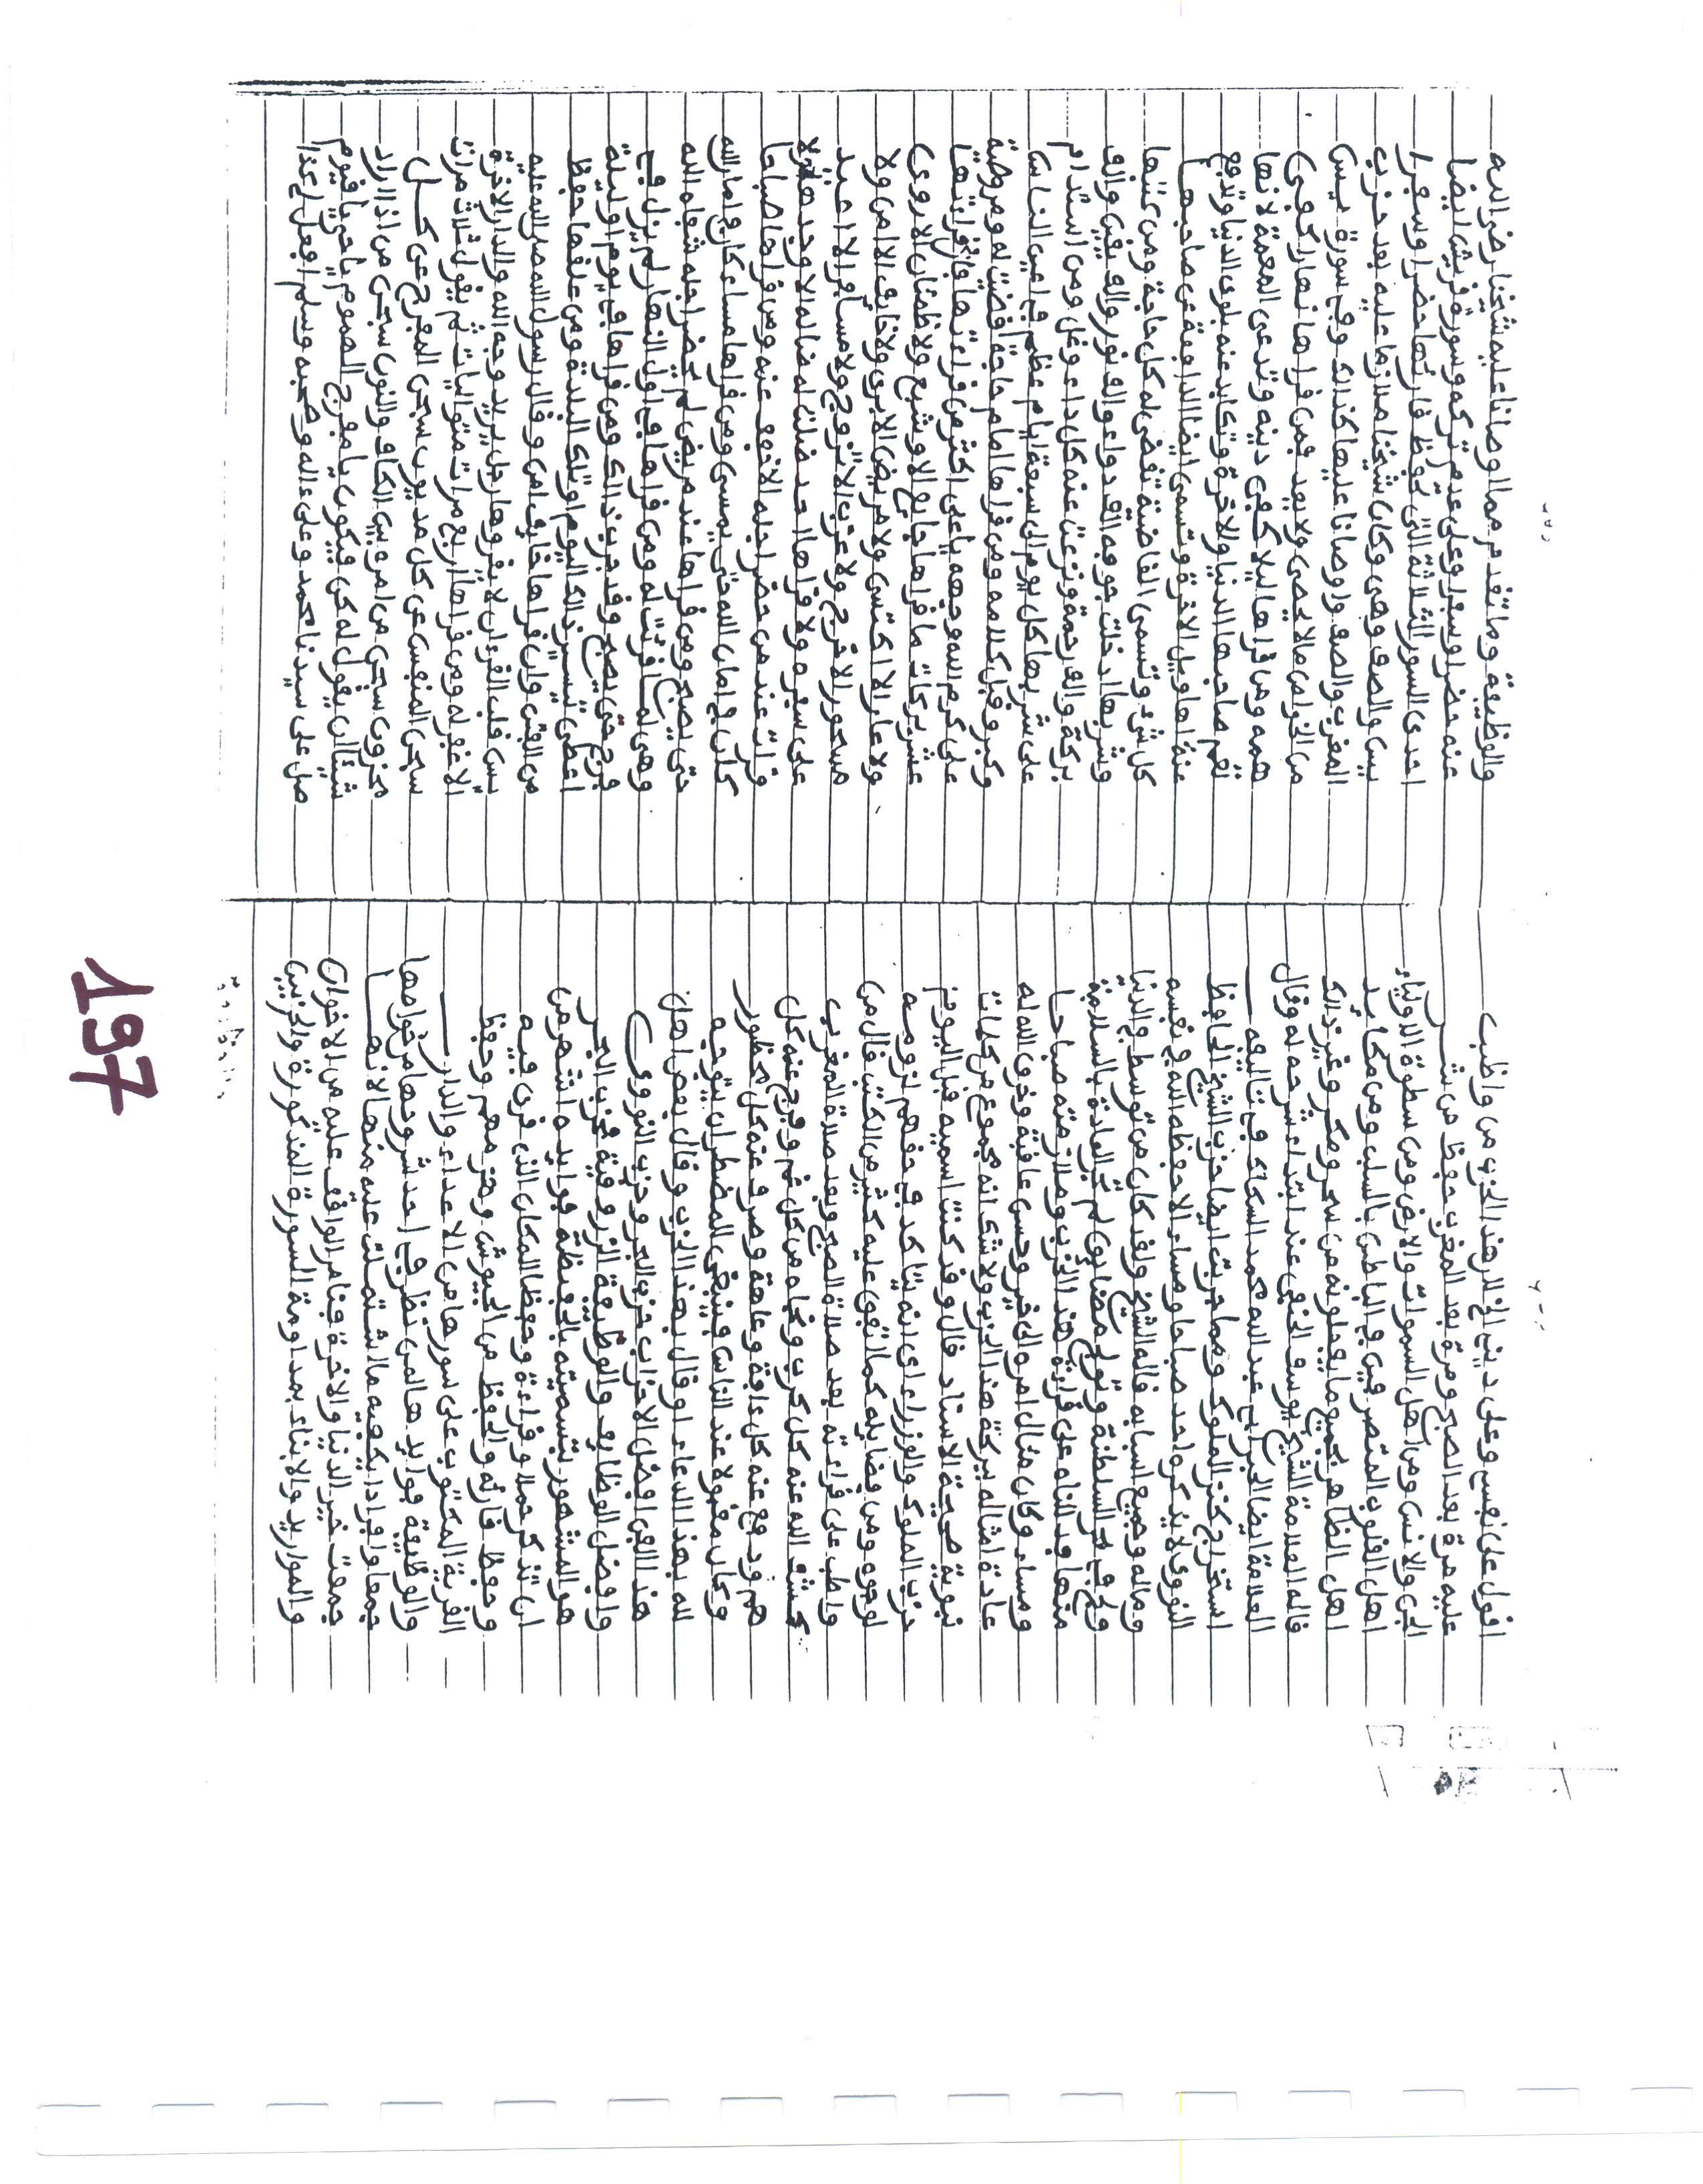 اقول على نفسى وعلى دينى الخ لان هذا الحزب من واظب
عليه مرة بعد الصبح ومرة بعد المغرب حفظ من شر
الجن والانس ومن اهل السموات والارض ومن سطوة الاولياء
اهل القلوب المتصرفين فى الباطن بالسلب ومن مكايد
اهل الظاهر بجميع ما يفعلونه من سحر ومكر وغير ذالك
قاله العلامة الشيخ يوسف الحنفى عند ابتداء شرحه له وقال
العلامة ايضا الحبر ابى عبد الله محمد السكاك فى تاليفه
استخراج كنز الملوك ومما جربت ايضا حزب الشيخ الحافظ
النووى لا يذكره احد صباحا ومساء الا حفظه الله فى نفسه
وماله وجميع اسبابه قاله الشيخ ولقد كان من توسط فى الدنيا
ولج فى بحر السلطنة وتولج مضايق لم تجر العادة بالسلامة
منها وقد على قراءة هذا الحزب وملازمته صباحا
ومساء وكان مئال امره الى خير وحسن عافية وخرق الله له
عادة امثاله ببركة هذا الحزب ولا شك انه مجموع من كلمات
نبوية صحيحة الاسناد قال وقد كنت اسميه قبل اليوم
حزب الملوك والوزراء اى انه يتاكد فى حقهم لزومه
لوجوه ومن فضايله كما اتفق عليه كثير من الكتب قال من
واظب على قراءته بعد صلاة الصبح وبعد صلاة المغرب
كشف الله عنه كل كرب ونجاه من كل غم وفرج عنه كل
هم ودفع عنه كل ءافة وعاهة وصرف عنه كل محظور
وكان مقبولا عند الناس فينبغى للمضطر ان يتوجه
لله بهذا الدعاء او قال بهذا الحزب وقال بعض اهل
هذا الفن افضل الاحزاب حزب البحر وحزب النووى
وافضل الوظايف والوظيفة الزروقية فحزب البحر
هو المشهور بتسميته بالحفيظة فوايده اشهر من
ان تذكر حملا وقراءة وحفظا لمكان الذى قرئ فيه
وحفظ قارئه والحفظ من الجيوش وهزمهم وحفظ
القرية المكتوب على سورها من الاعداء والدار
والوظيفة فوايدها لمن نظر فى احد شروحها من
جمعا وافرادا يكفيه ما اشتملت عليه منها لانها
جمعت خير الدنيا والاخرة فنامر الواقف عليه من الاخوان
والموارد والابناء بمداومة السورة المذكورة والحزبين
والوظيفة وما تقدم مما اوصانا عليه شيخنا رضى الله
عنه حضرا وسفرا وعلى عدم تركه وسورة قريش ايضا
احدى السور الثلاثة التى تحفظ قارئها حضرا وسفرا
يس والصف وهى وكان شيخنا ملازما عليه بعد حزب
المغرب والصف واوصانا عليها كذالك وفى سورة يس
من الخواص ما لا يحصى ولا يعد فمن قراها نهارا كفى
همه ومن قراها ليلا كفى دينه وتدعى المعمة لانها
تعم صاحبها الدنيا والاخرة وتكابد عنه بلوى الدنيا وتدفع
عنه اهاويل الاخرة وتسمى ايضا الدافعة عن صاحبها
كل شئ وتسمى القاضية تقضى له كل حاجة ومن كتبها
وشربها ادخلت جوفه الف دواء والف نور والف يقين والف
بركة والف رحمة ونزعت عنه كل داء وغل ومن استدام
على شربها كل يوم الى سبعة ايام عظم فى اعين الناس
وكبر وقبل كلامه ومن قراها امام حاجة قضيت له
على كرم الله وجهه يا على اكثر من قراءتها فان قراءتها
عشر بركات ما قراها جايع الا وشبع ولا ظمئان الا روى
ولا عار الا اكتسى ولا مريض الا برى ولا خايف الا امن ولا
مسحور الا فرج ولا عزب الا تزوج ولا مسافر الا
على سفره ولا قراها احد ضلت له ضالة الا وجدها ولا
قرئت عند من حضر اجله الا خفف عنه ومن قراها صباحا
كان فى امان الله حتى يمسى ومن قراها مساء كان فى امان الله
حتى يصبح ومن قراها عند مريض لم يحضر اجله شفاه الله
وهى لما قرئت له ومن قراها فى اول النهار لم يزل فى
فرح حتى يصبح وقد جرب ذالك ومن قراها فى يوم او ليلة
اعطى تيسير ذالك اليوم او تلك البلدة ومن علقها حفظ
من الفتن وان قراها خايف امن وقال رسول الله صلى الله عليه
يس قلب القرءان لا يقروها رجل يريد وجه الله والدار الاخرة
الا غفر له ومن قراها اربع مرات متواليات ثم يقول ثلاث مرات
سبحن المنفس عن كل مديون سبحن المفرج عن كل
محزون سبحن من امره بين الكاف والنون سبحن من اذا اراد
شيئا ان يقول له كن فيكون يا مفرج الهموم يا حى يا قيوم
صل على سيدنا محمد وعلى ءاله وصحبه وسلم افعل لى كذا
197